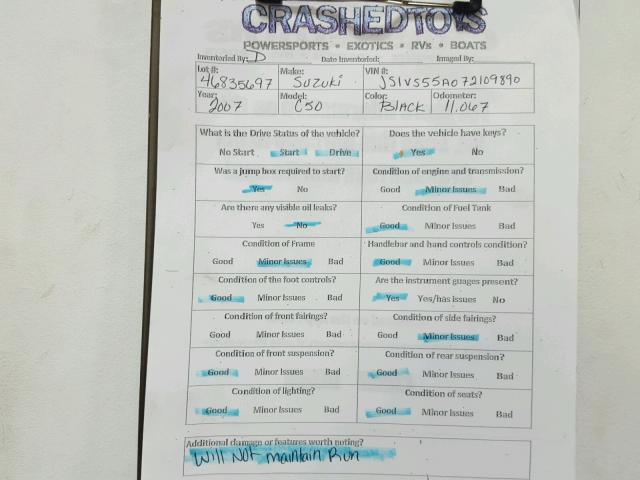 CRASHEDTOYS
POWERSPORTS • EXOTICS • RVs • BOATS
Inventoried By: D Date Inventoried: Imaged By:
Lot #: Make: VIN #:
46835697 Suzuki JS1VS55A072109890
Year: Model: Color: Odometer:
2007 C50 BlACK 11.067
What is the Drive Status of the vehicle? Does the vehicle have keys?
No Start Start Drive Yes No
Was a jump box required to start? Condition of engine and transmission?
Yes No Good Minor Issues Bad
Are there any visible oil leaks? Condition of Fuel Tank
Yes No Good Minor Issues Bad
Condition of Frame Handlebar and hand controls condition?
Good Minor Issues Bad Good Minor Issues Bad
Condition of the foot controls? Are the instrument guages present?
Good Minor Issues Bad Yes Yes/has issues No
Condition of front fairings? Condition of side fairings?
Good Minor Issues Bad Good Minor Issues Bad
Condition of front suspension? Condition of rear suspension?
Good Minor Issues Bad Good Minor Issues Bad
Condition of lighting? Condition of seats?
Good Minor Issues Bad Good Minor Issues Bad
Additional damage or features worth noting?
Will Not maintain Run